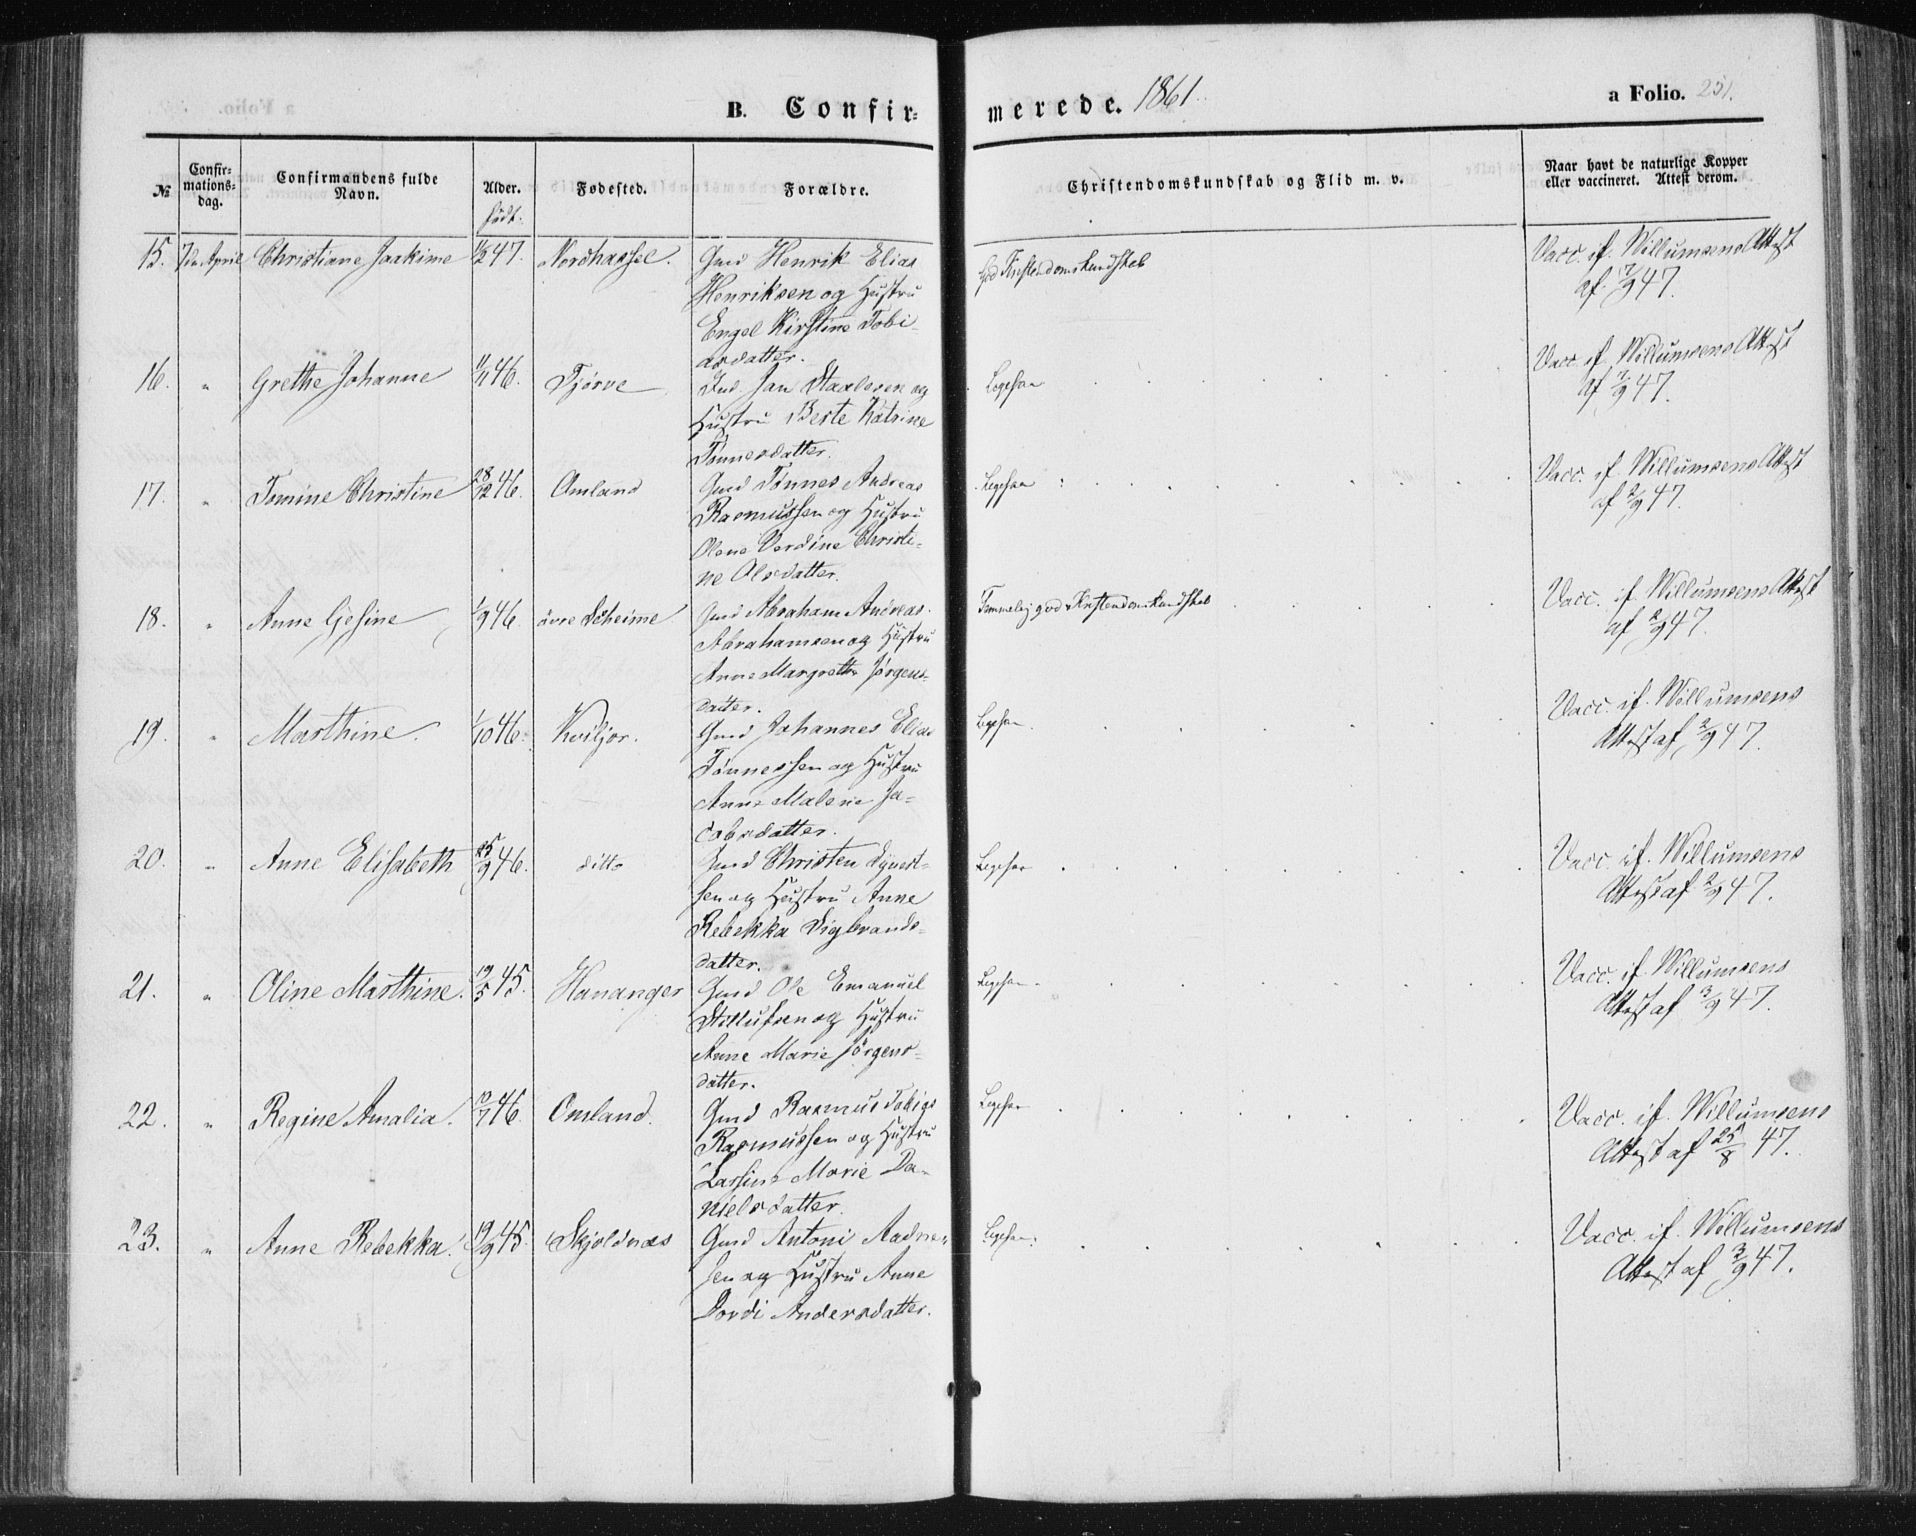 B. Confir-merede. 1861. a Folio. 251.
№ Confirmations-dag. Confirmandens fulde Navn. Alder. født. Fødested. Forældre. Christendomskundskab og Flid m. v. Naar havt de naturlige Kopper eller vaccineret. Attest derom.
15. 7de April Christiane Joakime 47. Nordhassel. Gmd Henrik Elias God Kristendomskundskab Vacc. if. Willumsens Attest
Henriksen og Hustru af 7/9 47.
Engel Kirstine Tobi-
asdatter.
16. " Grethe Johanne 11/11 46. Tjørve Ind. Jan Staalesen og Ligesaa Vacc. if. Willumsens Attest
Hustru Berte Katrine af 7/9 47.
Tønnesdatter.
17. " Tomine Christine 28/12 46. Omland Gmd Tønnes Andreas Ligesaa Vacc. if. Willumsens Attest
Rasmussen og Hustru af 2/9 47.
Olene Verdine Christi-
ne Olsdatter.
18. " Anne Gesine 1/9 46. øvre Skeime Gmd Abraham Andreas Temmelig god Kristendomskundskab Vacc. if Willumsens Attest
Abrahamsen og Hustru af 2/9 47.
Anne Margrethe Jørgens-
datter.
19. " Marthine. 1/10 46. Kviljor. Gmd Johannes Elias Ligesaa Vacc. if. Willumsens
Tønnessen og Hustru Attest af 2/9 47.
Anne Malene Ja-
cobsdatter.
20. " Anne Elisabeth 25/9 46. ditto Gmd Christen Syvert- Ligesaa Vacc. if. Willumsens
sen og Hustru Anne Attest af 2/9 47.
Rebekka Sigbrands-
datter.
21. " Oline Marthine. 19/5 45. Hananger Gmd Ole Emanuel Ligesaa Vacc. if. Willumsens
og Hustru Attest af 3/9 47.
Anne Marie Jørgens-
datter.
22. " Regine Amalia. 46. Omland. Gmd Rasmus Tobias Ligesaa Vacc. if. Willumsens
Rasmussen og Hustru Attest af 25/8 47.
Lassine Marie Da-
nielsdatter.
23. " Anne Rebekka. 19/9 45. Skjoldnæs Gmd Antoni Aadne- Ligesaa. Vacc. if. Willumsens
sen og Hustru Anne Attest af 3/9 47.
Dordi Andersdatter.